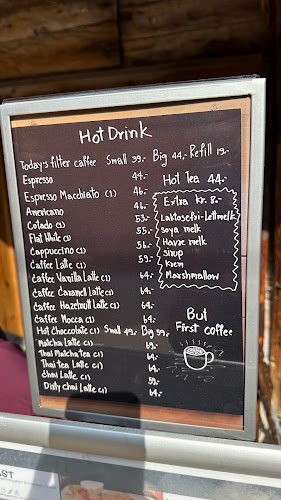 Hot Drink
Today's filter caffee Small 39.- Big 44.- Refill 19.-
Espresso 44.-
Espresso Macchiato (1) 46.-
Americano 46.-
Cotado (1) 53.-
Flat White (1) 55.-
Cappuccino (1) 56.-
Caffee Latte (1) 59.-
Caffee Vanilla Latte (1) 64.-
Caffee Caramel Latte (1) 64.-
Caffee Hazelnutt Latte (1) 64.-
Caffee Mocca (1) 64.-
Hot chocolate (1) Small 49.- Big 59.-
Matcha Latte (1) 64.-
Thai Matcha tea (1) 64.-
Thai tea Latte (1) 64.-
Chai Latte (1) 59.-
Dirty chai Latte (1) 64.-
Hot tea 44.-
Extra kr. 8.-
Laktosefri-Lettmelk
soya melk
Havre melk
Sirup
Krem
Marshmallow
But
First coffee
AST